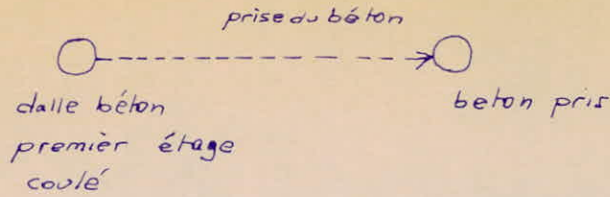 prise du béton
dalle béton
premier étage
coulé
beton pris